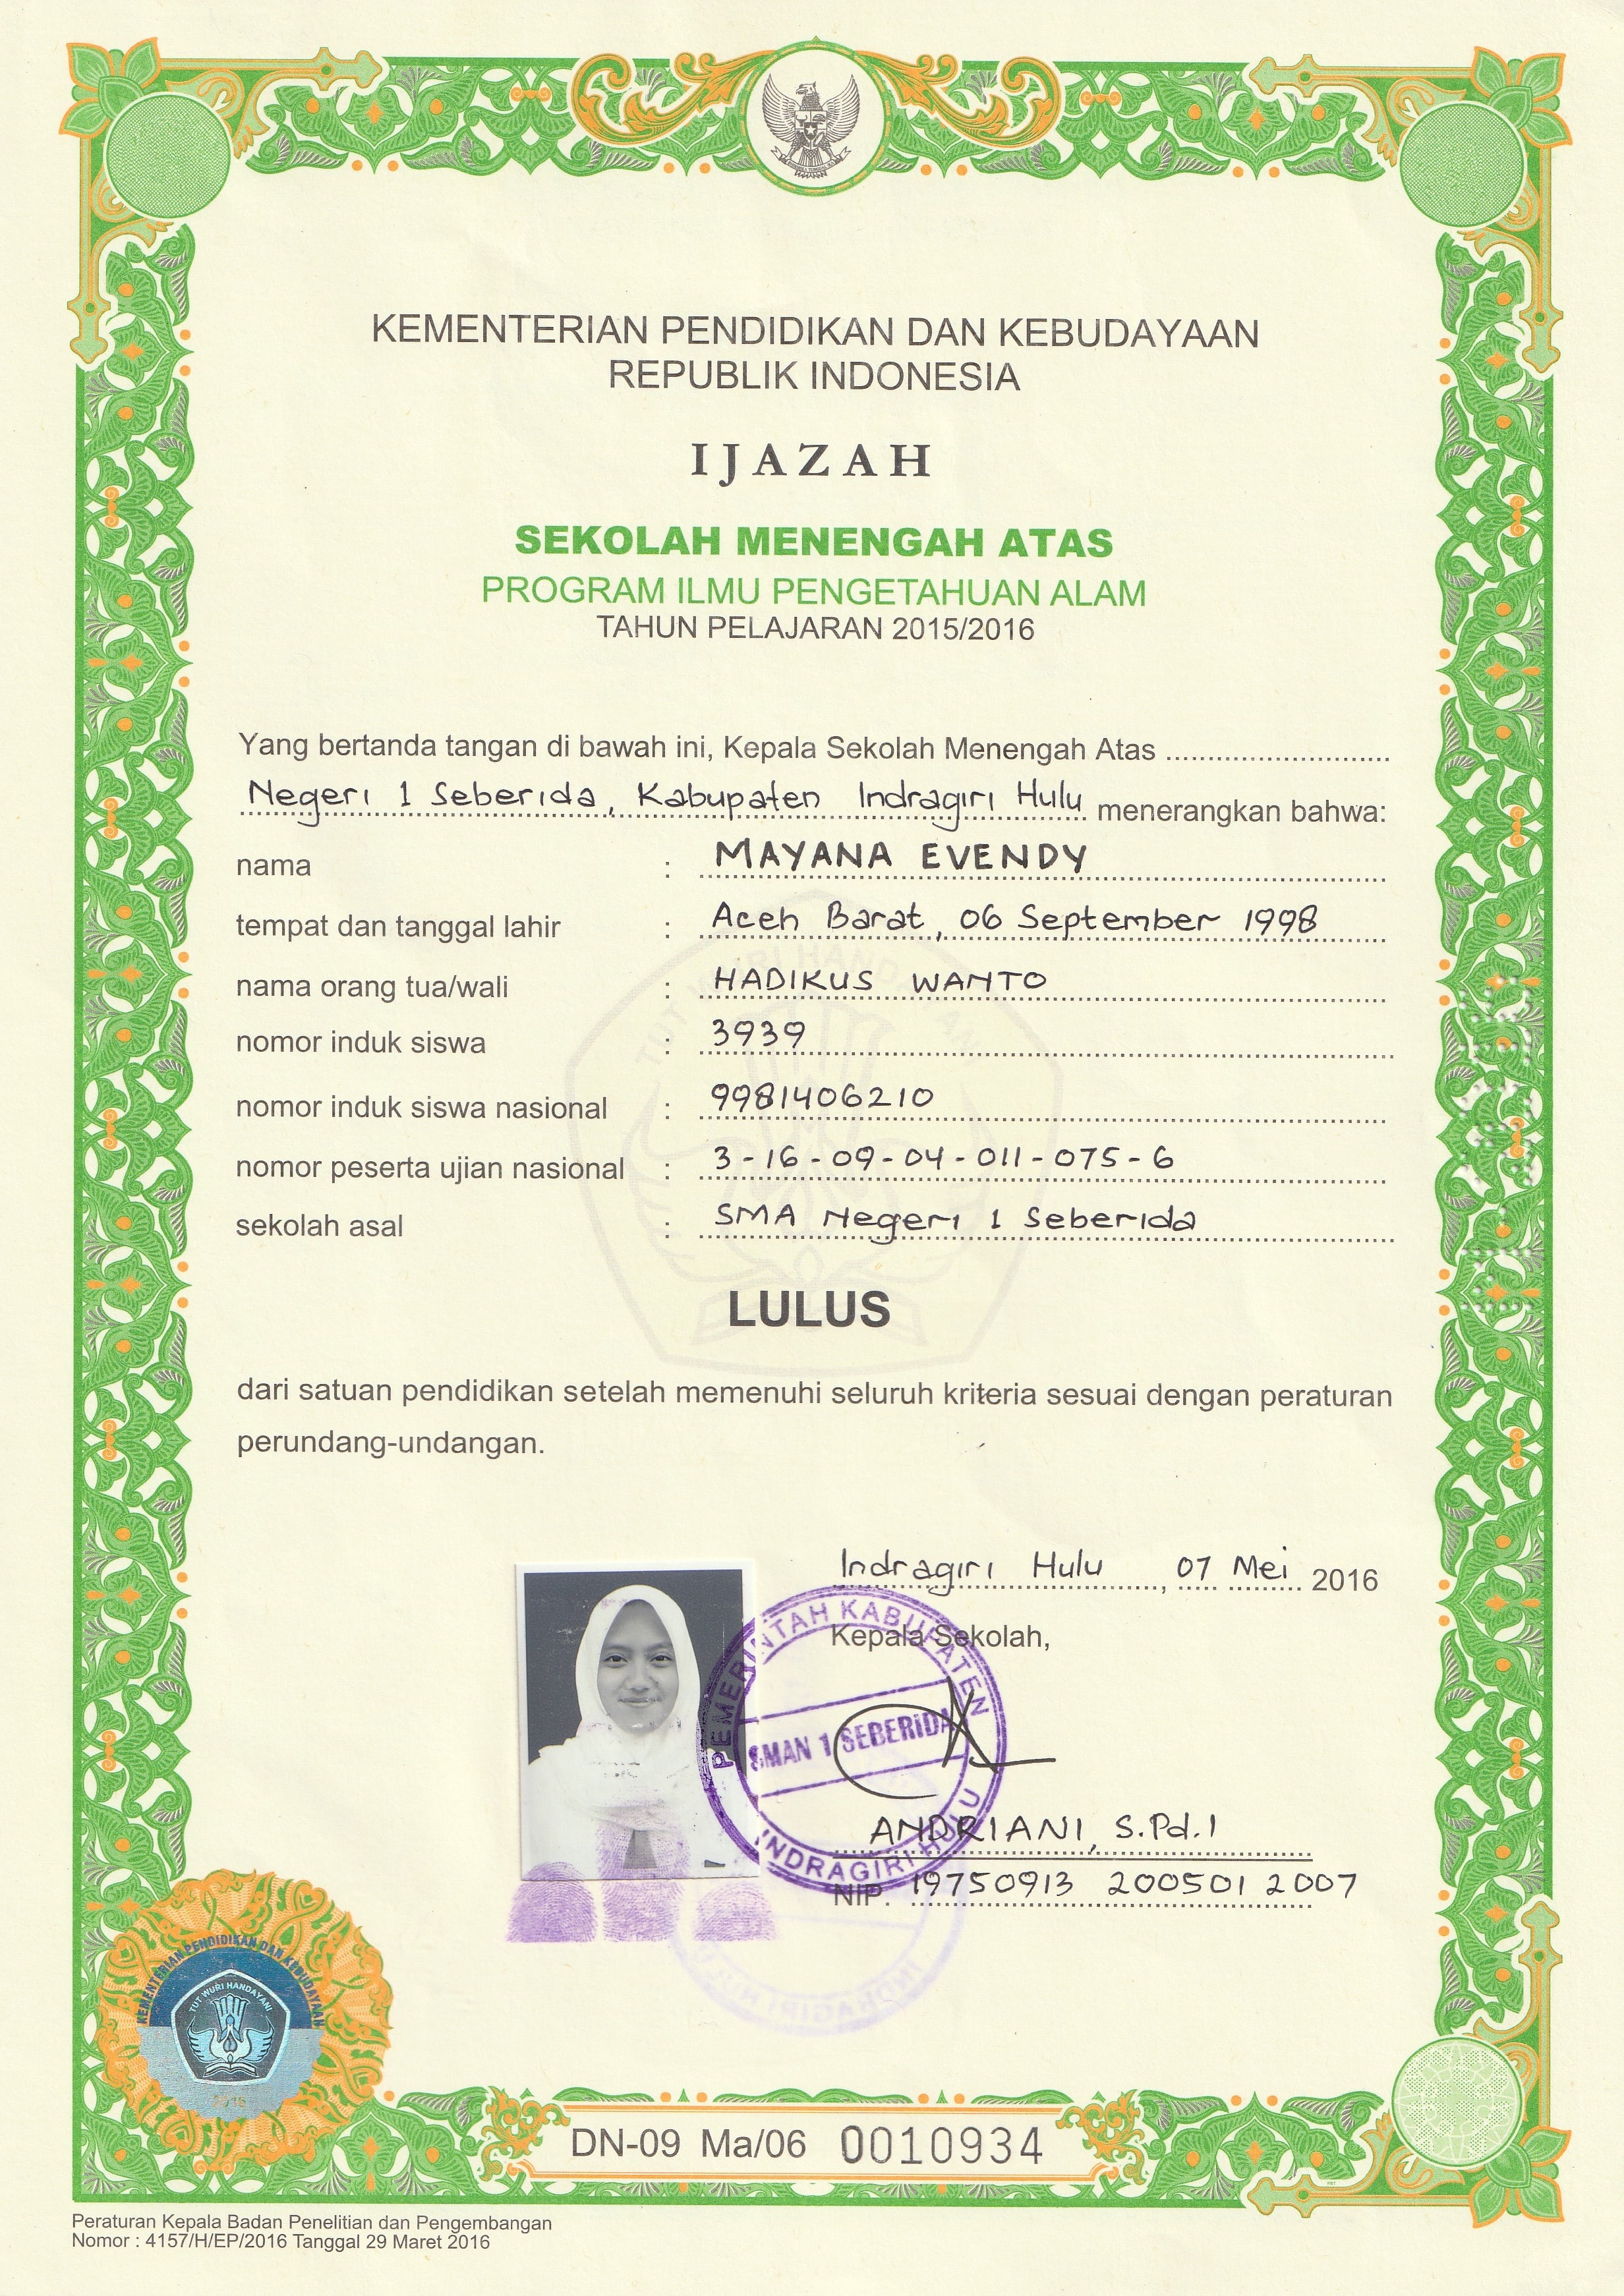 KEMENTERIAN PENDIDIKAN DAN KEBUDAYAAN
REPUBLIK INDONESIA
IJAZAH
SEKOLAH MENENGAH ATAS
PROGRAM ILMU PENGETAHUAN ALAM
TAHUN PELAJARAN 2015/2016
Yang bertanda tangan di bawah ini, Kepala Sekolah Menengah Atas ............................
Negeri 1 Seberida, Kabupaten Indragiri Hulu menerangkan bahwa:
nama : MAYANA EVENDY
tempat dan tanggal lahir : Aceh Barat, 06 September 1998
nama orang tua/wali : HADIKUS WANTO
nomor induk siswa : 3939
nomor induk siswa nasional : 9981406210
nomor peserta ujian nasional : 3-16-09-04-011-075-6
sekolah asal : SMA Negeri 1 Seberida
TUT WURI HANDAYANI
LULUS
dari satuan pendidikan setelah memenuhi seluruh kriteria sesuai dengan peraturan
perundang-undangan.
Indragiri Hulu, 07 Mei 2016
Kepala Sekolah,
PEMERINTAH KABUPATEN
SMAN 1 SEBERIDA
INDRAGIRI HULU
ANDRIANI, S.Pd.I
NIP. 19750913 200501 2 007
KEMENTERIAN PENDIDIKAN DAN KEBUDAYAAN
TUT WURI HANDAYANI
DN-09 Ma/06 0010934
Peraturan Kepala Badan Penelitian dan Pengembangan
Nomor : 4157/H/EP/2016 Tanggal 29 Maret 2016